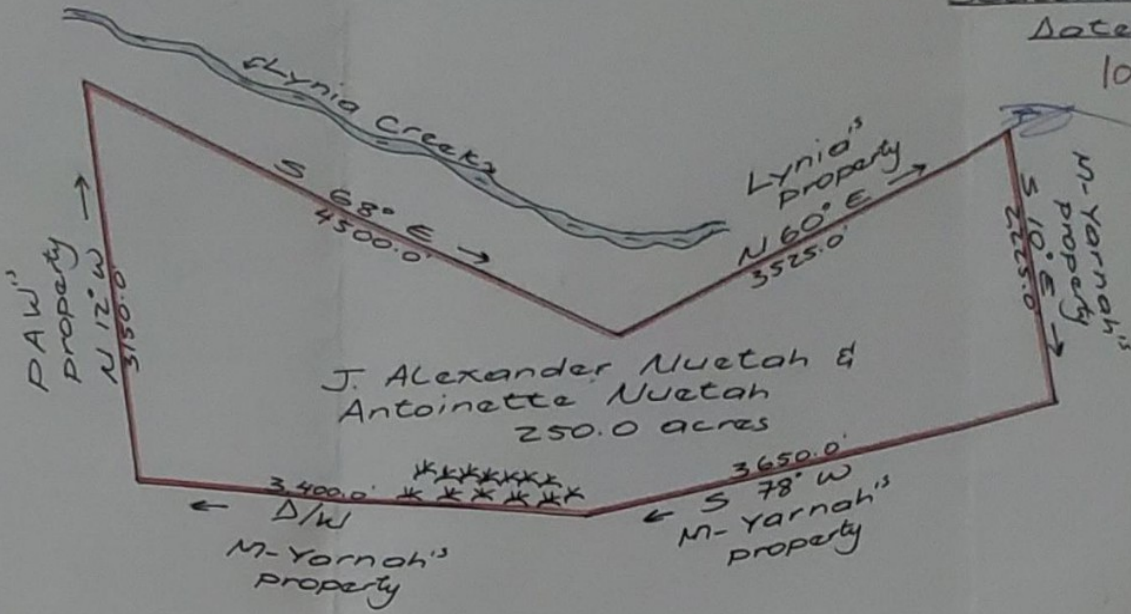 Date
10
Lynia Creek
S 68° E
4500.0'
Lynia's
property
N 60° E
3525.0'
M-Yarnah's
property
S 10° E
2225.0
PAW's
property
N 12° W
3150.0'
J. Alexander Nuetah &
Antoinette Nuetah
250.0 acres
3650.0'
S 78° W
M-Yarnah's
property
3,400.0'
D/W
M-Yarnah's
property